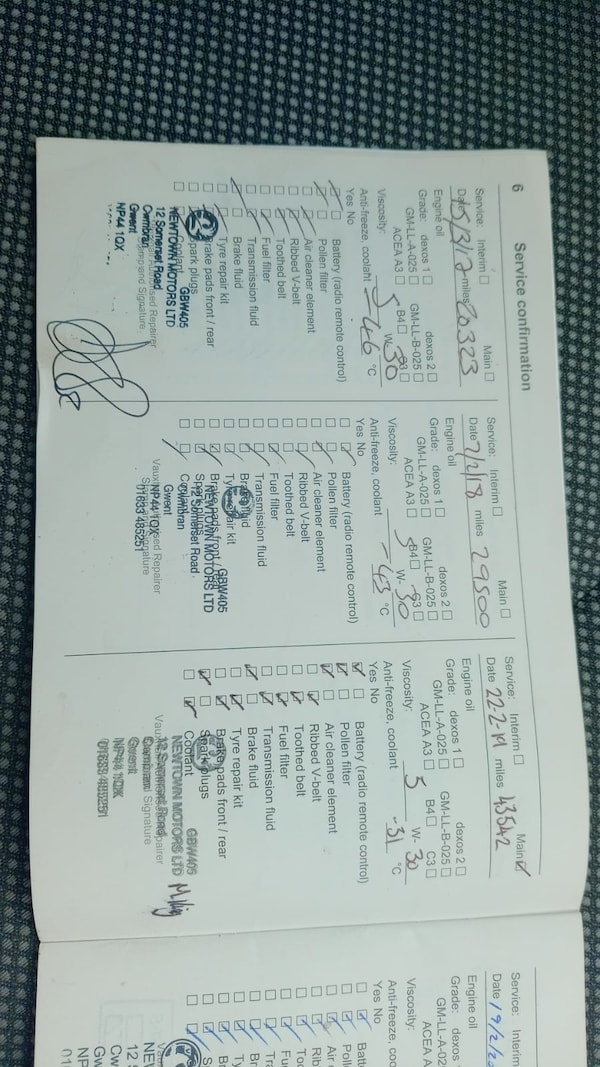 6 Service confirmation
Service: Interim ☐ Main ☐
Date 15/3/17 miles 20323
Engine oil
Grade: dexos 1 ☐ dexos 2 ☐
GM-LL-A-025 ☐ GM-LL-B-025 ☐
ACEA A3 ☐ B4 ☐ C3 ☐
Viscosity: 5 W- 30
Anti-freeze, coolant -46 °C
Yes No
Battery (radio remote control)
Pollen filter
Air cleaner element
Ribbed V-belt
Toothed belt
Fuel filter
Transmission fluid
Brake fluid
Tyre repair kit
Brake pads front / rear
Spark plugs
GBW405
NEWTOWN MOTORS LTD
12 Somerset Road
Cwmbran
Gwent
NP44 1QX
Service: Interim ☐ Main ☐
Date 7/2/18 miles 29500
Engine oil
Grade: dexos 1 ☐ dexos 2 ☐
GM-LL-A-025 ☐ GM-LL-B-025 ☐
ACEA A3 ☐ B4 ☐ C3 ☐
Viscosity: 5 W- 30
Anti-freeze, coolant -43 °C
Yes No
Battery (radio remote control)
Pollen filter
Air cleaner element
Ribbed V-belt
Toothed belt
Fuel filter
Transmission fluid
Brake fluid
Tyre repair kit
Brake pads front / rear
Spark plugs
Coolant
GBW405
NEWTOWN MOTORS LTD
12 Somerset Road
Cwmbran
Gwent
NP44 1QX
01633 485251
Service: Interim ☐ Main ☑
Date 22-2-19 miles 43542
Engine oil
Grade: dexos 1 ☐ dexos 2 ☐
GM-LL-A-025 ☐ GM-LL-B-025 ☐
ACEA A3 ☐ B4 ☐ C3 ☐
Viscosity: 5 W- 30
Anti-freeze, coolant -31 °C
Yes No
Battery (radio remote control)
Pollen filter
Air cleaner element
Ribbed V-belt
Toothed belt
Fuel filter
Transmission fluid
Brake fluid
Tyre repair kit
Brake pads front / rear
Spark plugs
Coolant
GBW405
NEWTOWN MOTORS LTD
12 Somerset Road
Cwmbran
Gwent
NP44 1QX
01633 485251
Service: Interim
Date 19/2/20
Engine oil
Grade: dexos
GM-LL-A-02
ACEA A
Viscosity:
Anti-freeze, coo
Yes No
Batt
Poll
Air c
Ribb
Too
Fue
Tra
Br
Ty
B
S
NEW
12 S
Cw
Gw
NP
01